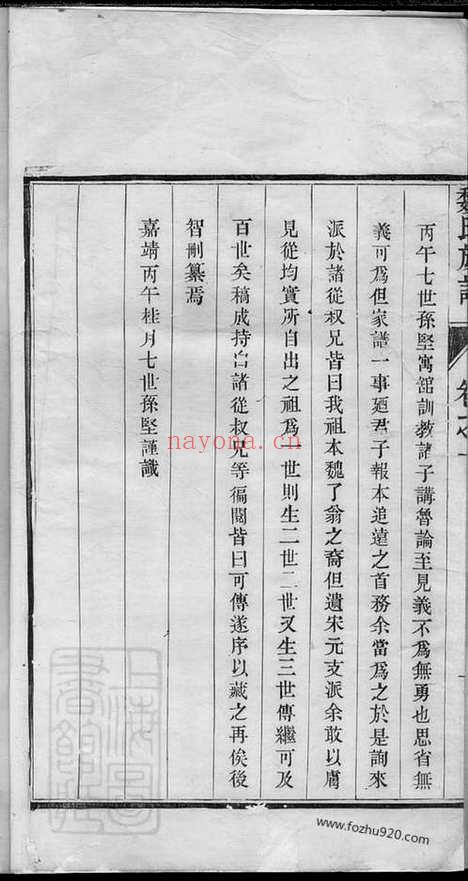 魏氏族譜
丙午七世孫堅寓舘訓教諸子講魯論至見義不爲無勇也思省無
義可爲但家譜一事廼君子報本追遠之首務余當爲之於是詢來
派於諸從叔兄皆曰我祖本魏了翁之裔但遺宋元支派余敢以膚
見從均實所自出之祖爲一世則生二世二世又生三世傳繼可及
百世矣稿成持吿諸從叔兄等徧閱皆曰可傳遂序以藏之再俟後
智刪纂焉
嘉靖丙午桂月七世孫堅謹識
nayona.cn
www.fozhu920.com